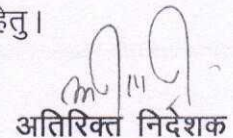 हेतु।
अतिरिक्त निदेशक